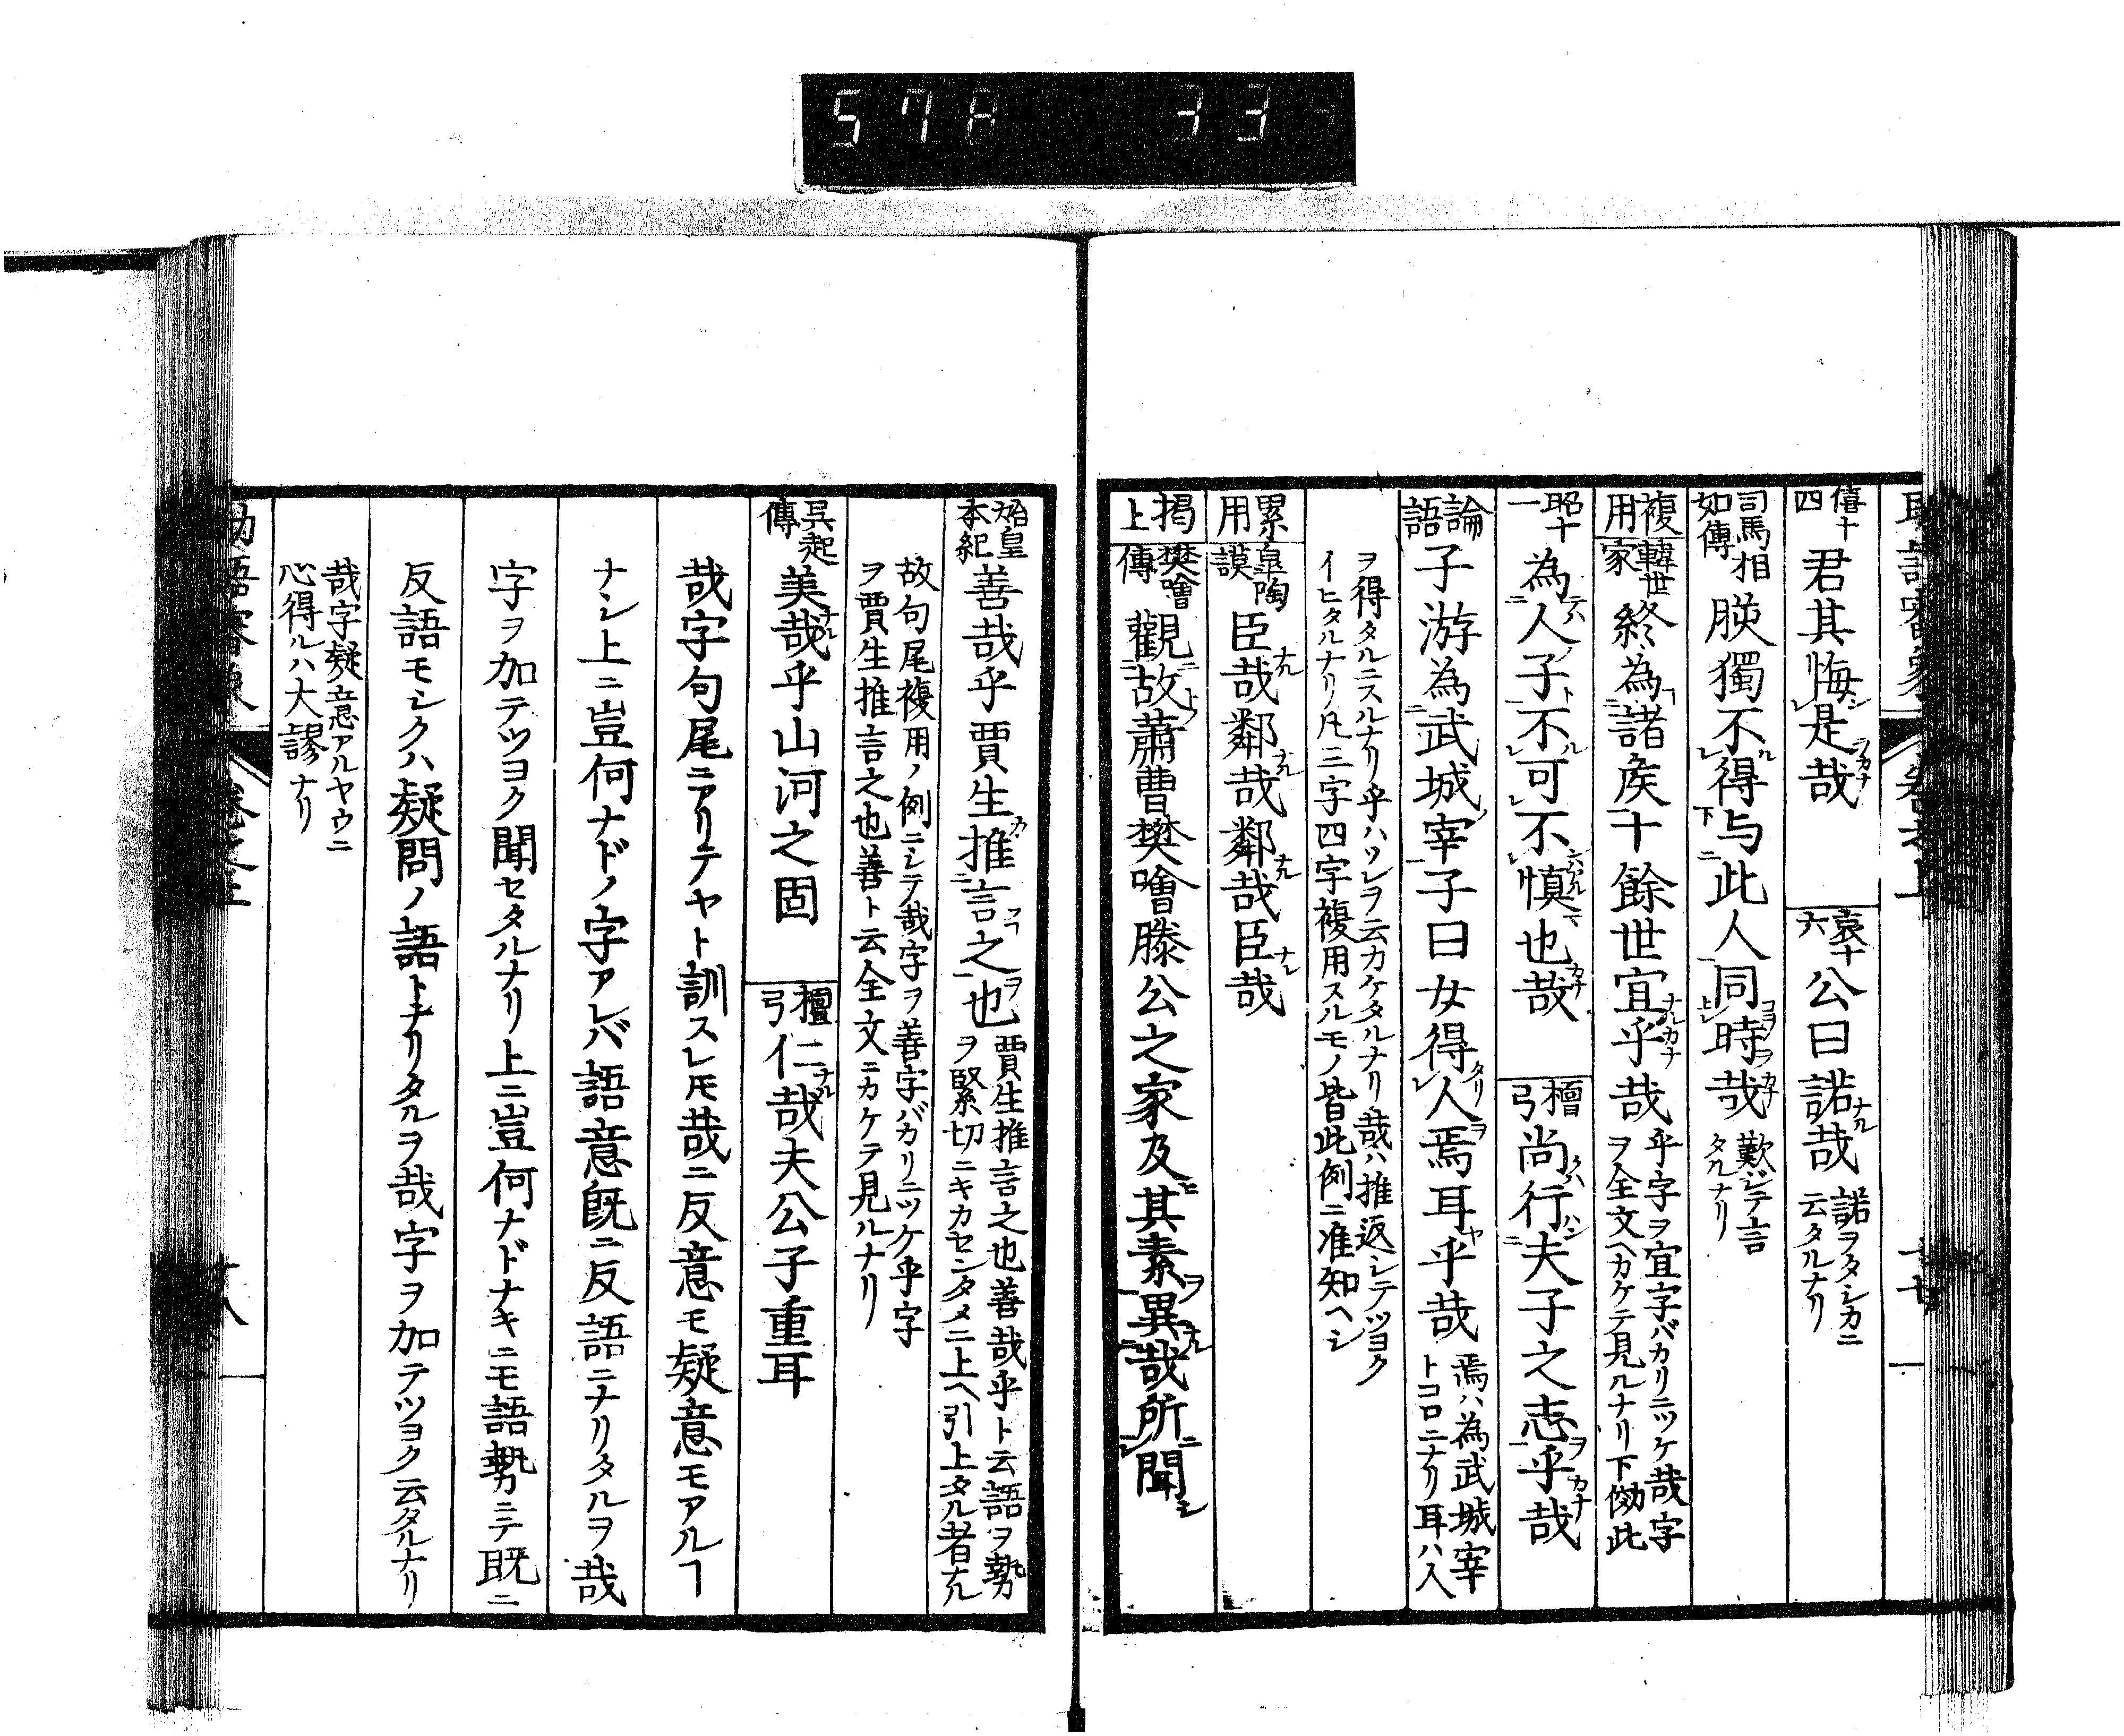 僖十四 君其悔是哉 哀十六 公曰諾哉 諾ヲタシカニ云タルナリ
司馬相如傳 朕獨不得与此人同時哉 歎ジテ言タルナリ
複用 韓世家 終為諸矦十餘世宜乎哉 乎字ヲ宜字バカリニツケ哉字ヲ全文ヘカケテ見ルナリ下傚此
昭十一 為人子不可不慎也哉 檀弓 尚行夫子之志乎哉
論語 子游為武城宰子曰女得人焉耳乎哉 焉ハ為武城宰トコロニナリ耳ハ入
ヲ得タルニスルナリ乎ハソレヲ云カケタルナリ哉ハ推返シテツヨクイヒタルナリ凡三字四字複用スルモノ皆此例ニ准知ヘシ
累用 皐陶謨 臣哉鄰哉鄰哉臣哉
掲上 樊噲傳 觀故蕭曹樊噲滕公之家及其素異哉所聞
始皇本紀 善哉乎賈生推言之也 賈生推言之也善哉乎ト云語ヲ勢ヲ緊切ニキカセンタメニ上ヘ引上タル者ナル
故句尾複用ノ例ニシテ哉字ヲ善字バカリニツケ乎字ヲ賈生推言之也善ト云全文ニカケテ見ルナリ
吴起傳 美哉乎山河之固 檀弓 仁哉夫公子重耳
哉字句尾ニアリテヤト訓スレ𪜈哉ニ反意モ疑意モアルヿ
ナシ上ニ豈何ナドノ字アレバ語意既ニ反語ニナリタルヲ哉
字ヲ加テツヨク聞セタルナリ上ニ豈何ナドナキニモ語勢ニテ既ニ
反語モシクハ疑問ノ語トナリタルヲ哉字ヲ加テツヨク云タルナリ
哉字疑意アルヤウニ心得ルハ大謬ナリ